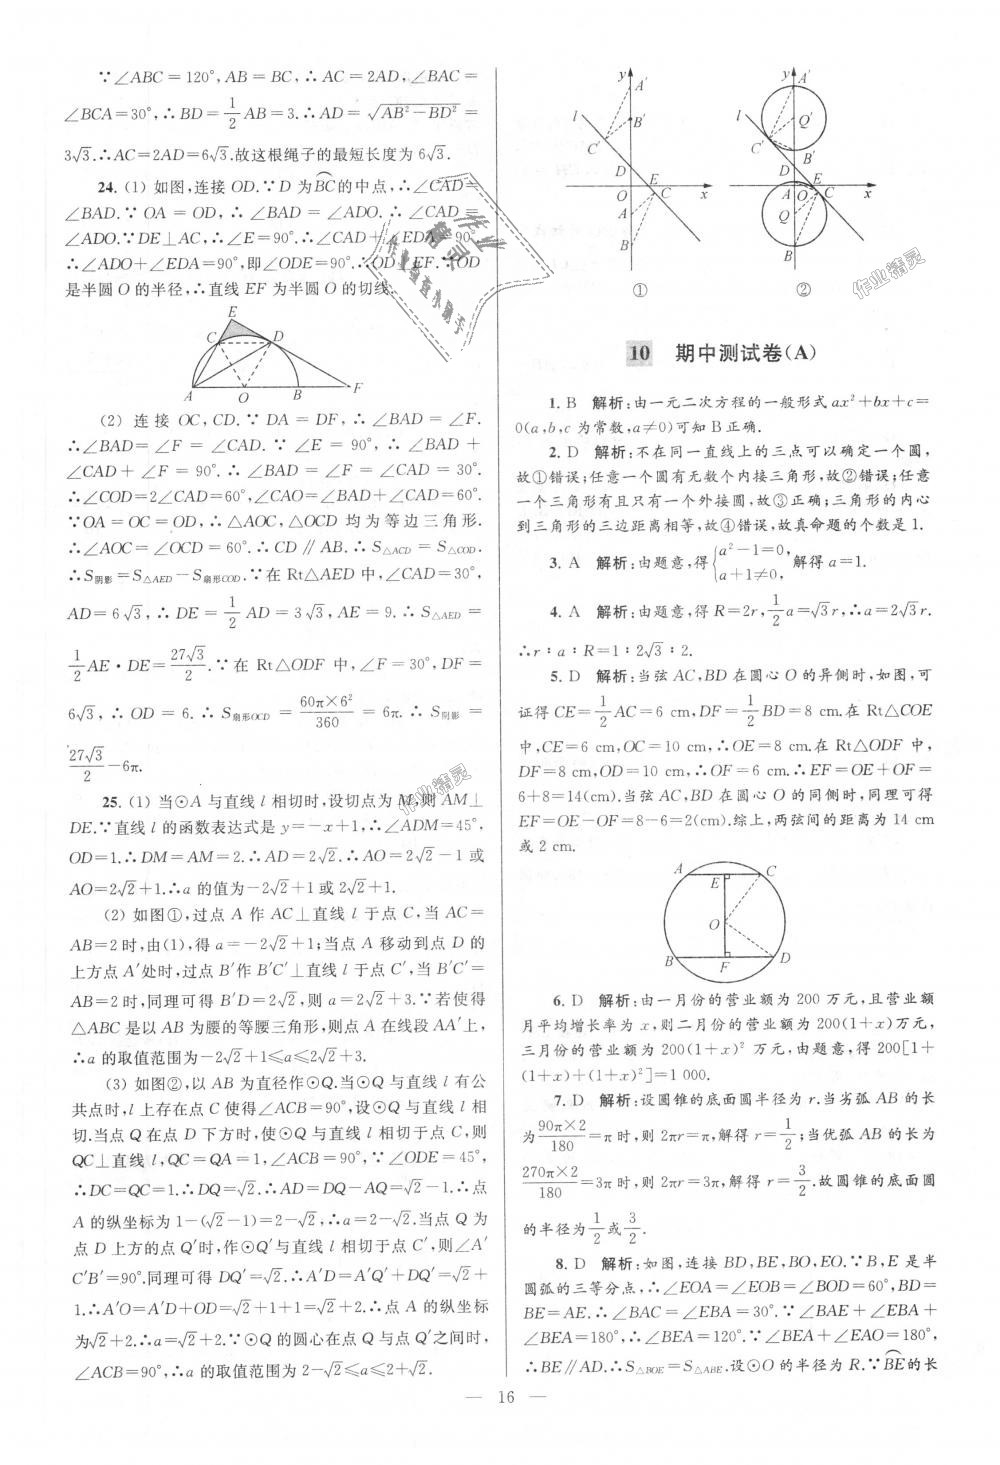 ∵∠ABC＝120°,AB＝BC,∴AC＝2AD,∠BAC＝
∠BCA＝30°,∴BD＝1/2AB＝3.∴AD＝√(AB²－BD²)＝
3√3.∴AC＝2AD＝6√3.故这根绳子的最短长度为6√3.
24. (1) 如图,连接OD.∵D为BC⌒的中点,∴∠CAD＝
∠BAD.∵OA＝OD,∴∠BAD＝∠ADO.∴∠CAD＝
∠ADO.∵DE⊥AC,∴∠E＝90°.∴∠CAD＋∠EDA＝90°.
∴∠ADO＋∠EDA＝90°,即∠ODE＝90°.∴OD⊥EF.∵OD
是半圆O的半径,∴直线EF为半圆O的切线.
E
C D
A O B F
(2) 连接OC,CD.∵DA＝DF,∴∠BAD＝∠F.
∴∠BAD＝∠F＝∠CAD.∵∠E＝90°,∴∠BAD＋
∠CAD＋∠F＝90°.∴∠BAD＝∠F＝∠CAD＝30°.
∴∠COD＝2∠CAD＝60°,∠CAO＝∠BAD＋∠CAD＝60°.
∵OA＝OC＝OD,∴△AOC,△OCD均为等边三角形.
∴∠AOC＝∠OCD＝60°.∴CD∥AB.∴S△ACD＝S△COD.
∴S阴影＝S△AED－S扇形COD.∵在Rt△AED中,∠CAD＝30°,
AD＝6√3,∴DE＝1/2AD＝3√3,AE＝9.∴S△AED＝
1/2AE·DE＝27√3/2.∵在Rt△ODF中,∠F＝30°,DF＝
6√3,∴OD＝6.∴S扇形OCD＝60π×6²/360＝6π.∴S阴影＝
27√3/2－6π.
25. (1) 当⊙A与直线l相切时,设切点为M,则AM⊥
DE.∵直线l的函数表达式是y＝－x＋1,∴∠ADM＝45°,
OD＝1.∴DM＝AM＝2.∴AD＝2√2.∴AO＝2√2－1或
AO＝2√2＋1.∴a的值为－2√2＋1或2√2＋1.
(2) 如图①,过点A作AC⊥直线l于点C,当AC＝
AB＝2时,由(1),得a＝－2√2＋1;当点A移动到点D的
上方点A′处时,过点B′作B′C′⊥直线l于点C′,当B′C′＝
AB＝2时,同理可得B′D＝2√2,则a＝2√2＋3.∵若使得
△ABC是以AB为腰的等腰三角形,则点A在线段AA′上,
∴a的取值范围为－2√2＋1≤a≤2√2＋3.
(3) 如图②,以AB为直径作⊙Q.当⊙Q与直线l有公
共点时,l上存在点C使得∠ACB＝90°,设⊙Q与直线l相
切.当点Q在点D下方时,使⊙Q与直线l相切于点C,则
QC⊥直线l,QC＝QA＝1,∠ACB＝90°.∵∠ODE＝45°,
∴DC＝QC＝1.∴DQ＝√2.∴AD＝DQ－AQ＝√2－1.∴点
A的纵坐标为1－(√2－1)＝2－√2,∴a＝2－√2.当点Q为
点D上方的点Q′时,作⊙Q′与直线l相切于点C′,则∠A′
C′B′＝90°.同理可得DQ′＝√2.∴A′D＝A′Q′＋DQ′＝√2＋
1.∴A′O＝A′D＋OD＝√2＋1＋1＝√2＋2.∴点A的纵坐标
为√2＋2.∴a＝√2＋2.∵⊙Q的圆心在点Q与点Q′之间时,
∠ACB＝90°,∴a的取值范围为2－√2≤a≤2＋√2.
y A′ B′ l C′ D E O C x A B
①
y A′ l Q′ C′ B′ D E A O C x Q B
②
10 期中测试卷(A)
1. B 解析:由一元二次方程的一般形式ax²＋bx＋c＝
0(a,b,c为常数,a≠0)可知B正确.
2. D 解析:不在同一直线上的三点可以确定一个圆,
故①错误;任意一个圆有无数个内接三角形,故②错误;任意
一个三角形有且只有一个外接圆,故③正确;三角形的内心
到三角形的三边距离相等,故④错误,故真命题的个数是1.
3. A 解析:由题意,得{a²－1＝0, a＋1≠0, 解得a＝1.
4. A 解析:由题意,得R＝2r,1/2a＝√3r,∴a＝2√3r.
∴r∶a∶R＝1∶2√3∶2.
5. D 解析:当弦AC,BD在圆心O的异侧时,如图,可
证得CE＝1/2AC＝6 cm,DF＝1/2BD＝8 cm.在Rt△COE
中,CE＝6 cm,OC＝10 cm,∴OE＝8 cm.在Rt△ODF中,
DF＝8 cm,OD＝10 cm,∴OF＝6 cm.∴EF＝OE＋OF＝
6＋8＝14(cm).当弦AC,BD在圆心O的同侧时,同理可得
EF＝OE－OF＝8－6＝2(cm).综上,两弦间的距离为14 cm
或2 cm.
A E C
O
B F D
6. D 解析:由一月份的营业额为200万元,且营业额
月平均增长率为x,则二月份的营业额为200(1＋x)万元,
三月份的营业额为200(1＋x)²万元,由题意,得200[1＋
(1＋x)＋(1＋x)²]＝1 000.
7. D 解析:设圆锥的底面圆半径为r.当劣弧AB的长
为90π×2/180＝π时,则2πr＝π,解得r＝1/2;当优弧AB的长为
270π×2/180＝3π时,则2πr＝3π,解得r＝3/2.故圆锥的底面圆
的半径为1/2或3/2.
8. D 解析:如图,连接BD,BE,BO,EO.∵B,E是半
圆弧的三等分点,∴∠EOA＝∠EOB＝∠BOD＝60°,BD＝
BE＝AE.∴∠BAC＝∠EBA＝30°.∵∠BAE＋∠EBA＋
∠BEA＝180°,∴∠BEA＝120°.∵∠BEA＋∠EAO＝180°,
∴BE∥AD.∴S△BOE＝S△ABE.设⊙O的半径为R.∵BE⌒的长
— 16 —
作业精灵
作业精灵